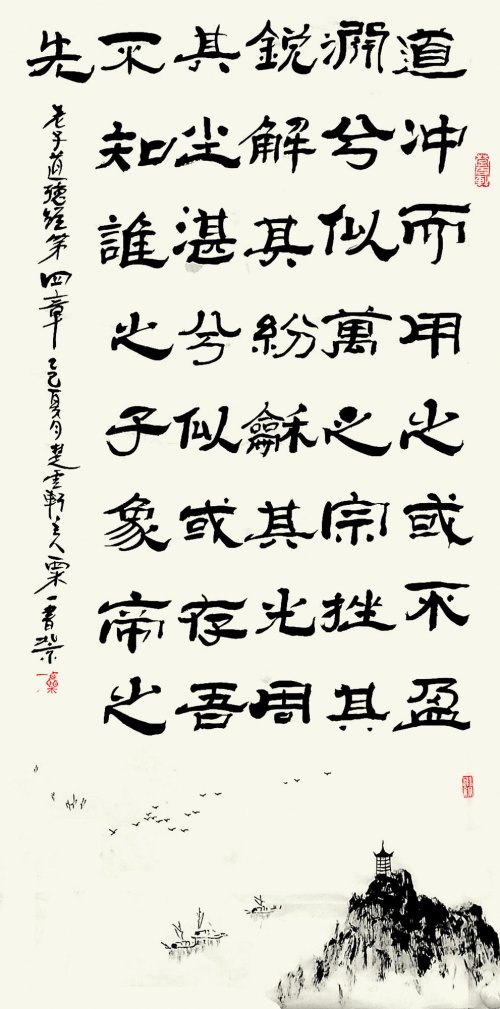 道冲而用之或不盈
渊兮似萬之宗挫其
銳解其紛龢其光周
其尘湛兮似或存吾
不知誰之子象帝之
先
老子道德經第四章 夏月楚雲軒主人粟一書